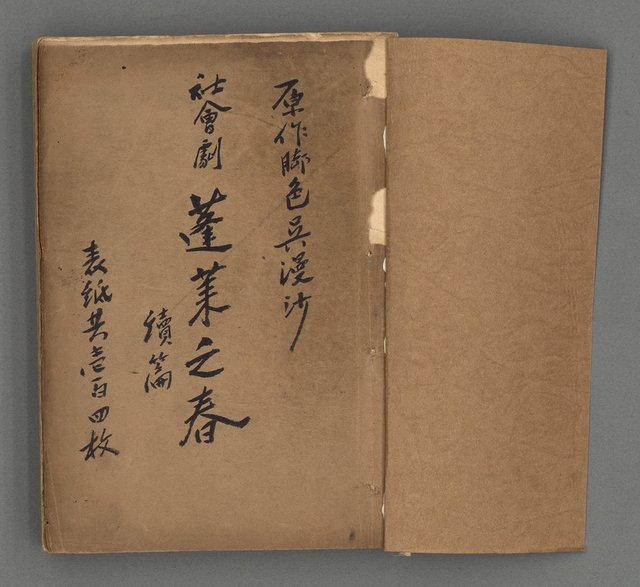 原作脚色吳漫沙
社會劇 蓬萊之春
續篇
表紙共壹百四枚